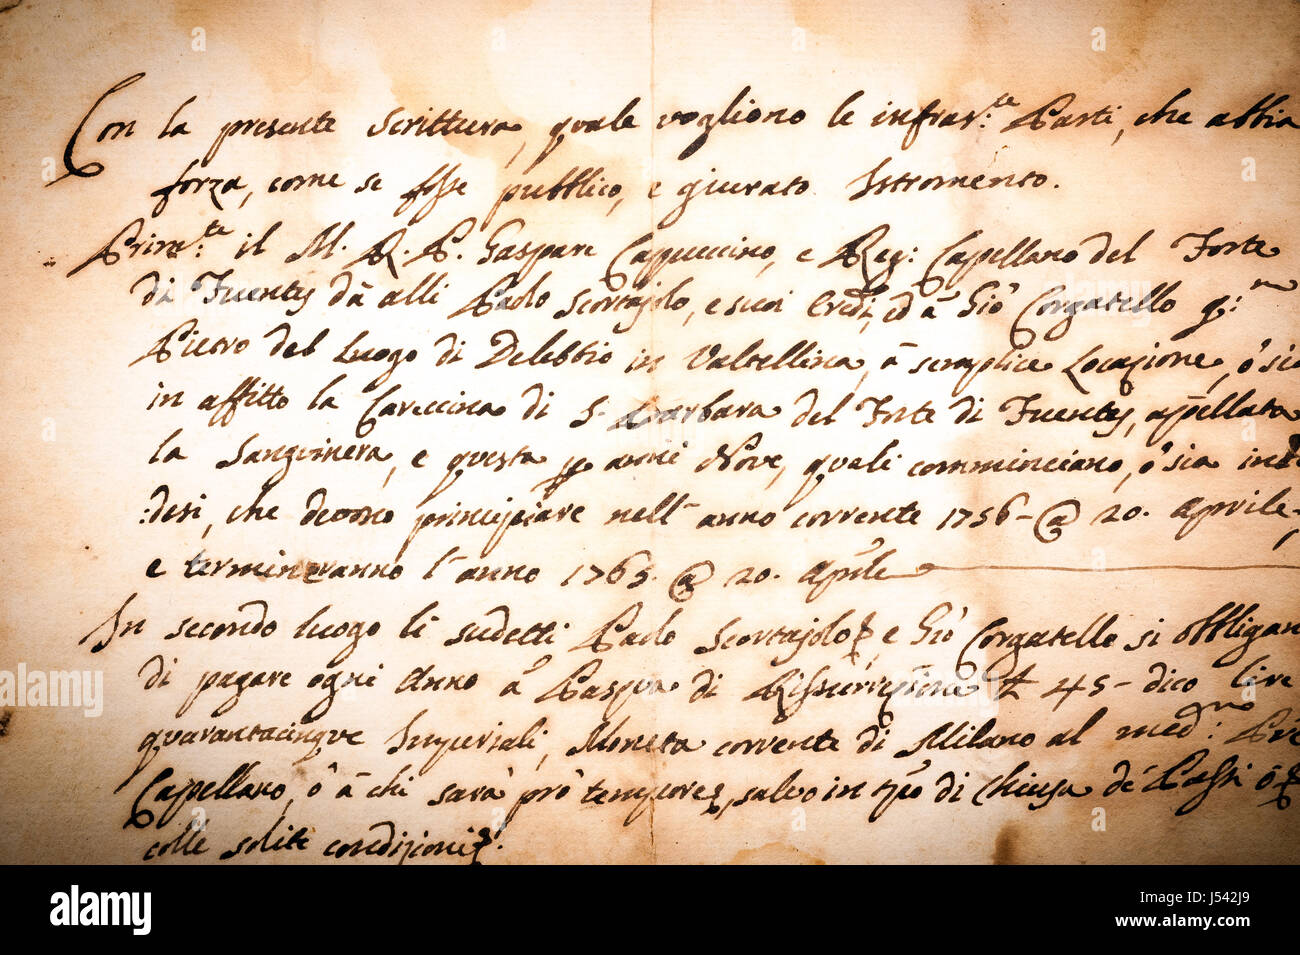 Con la presente Scrittura, quale vogliono le infras:te Parti, che abbia
forza, come se fosse pubblico, e giurato Istromento.
Prim:te il M. R. P. Gaspare Cappuccino, e Reg: Capellano del Forte
di Fuentes dà alli Paolo Scortajolo, e suoi Credi, ed à Giò Corgatello q:m
Pietro del Luogo di Delebbio in Valtellina, à semplice Locazione, ò sia
in affitto la Careccina di S. Barbara del Forte di Fuentes, appellata
la Sanguinera, e questa p anni Nove, quali comminciano, ò sia
:desi, che devono principiare nell'anno corrente 1756 - @ 20. Aprile,
e termineranno l'anno 1765. @ 20. Aprile
In secondo luogo li sudetti Paolo Scortajolo, e Giò Corgatello si obbligan
di pagare ogni Anno à Pasqua di Rissurrezione £ 45 - dico lire
quarantacinque Imperiali, Moneta corrente di Milano al med:mo
Capellano, ò à chi sarà prò tempore, salvo in di Chiusa dè Passi ò
colle solite condizioni.
alamy
Image ID: J542J9
www.alamy.com